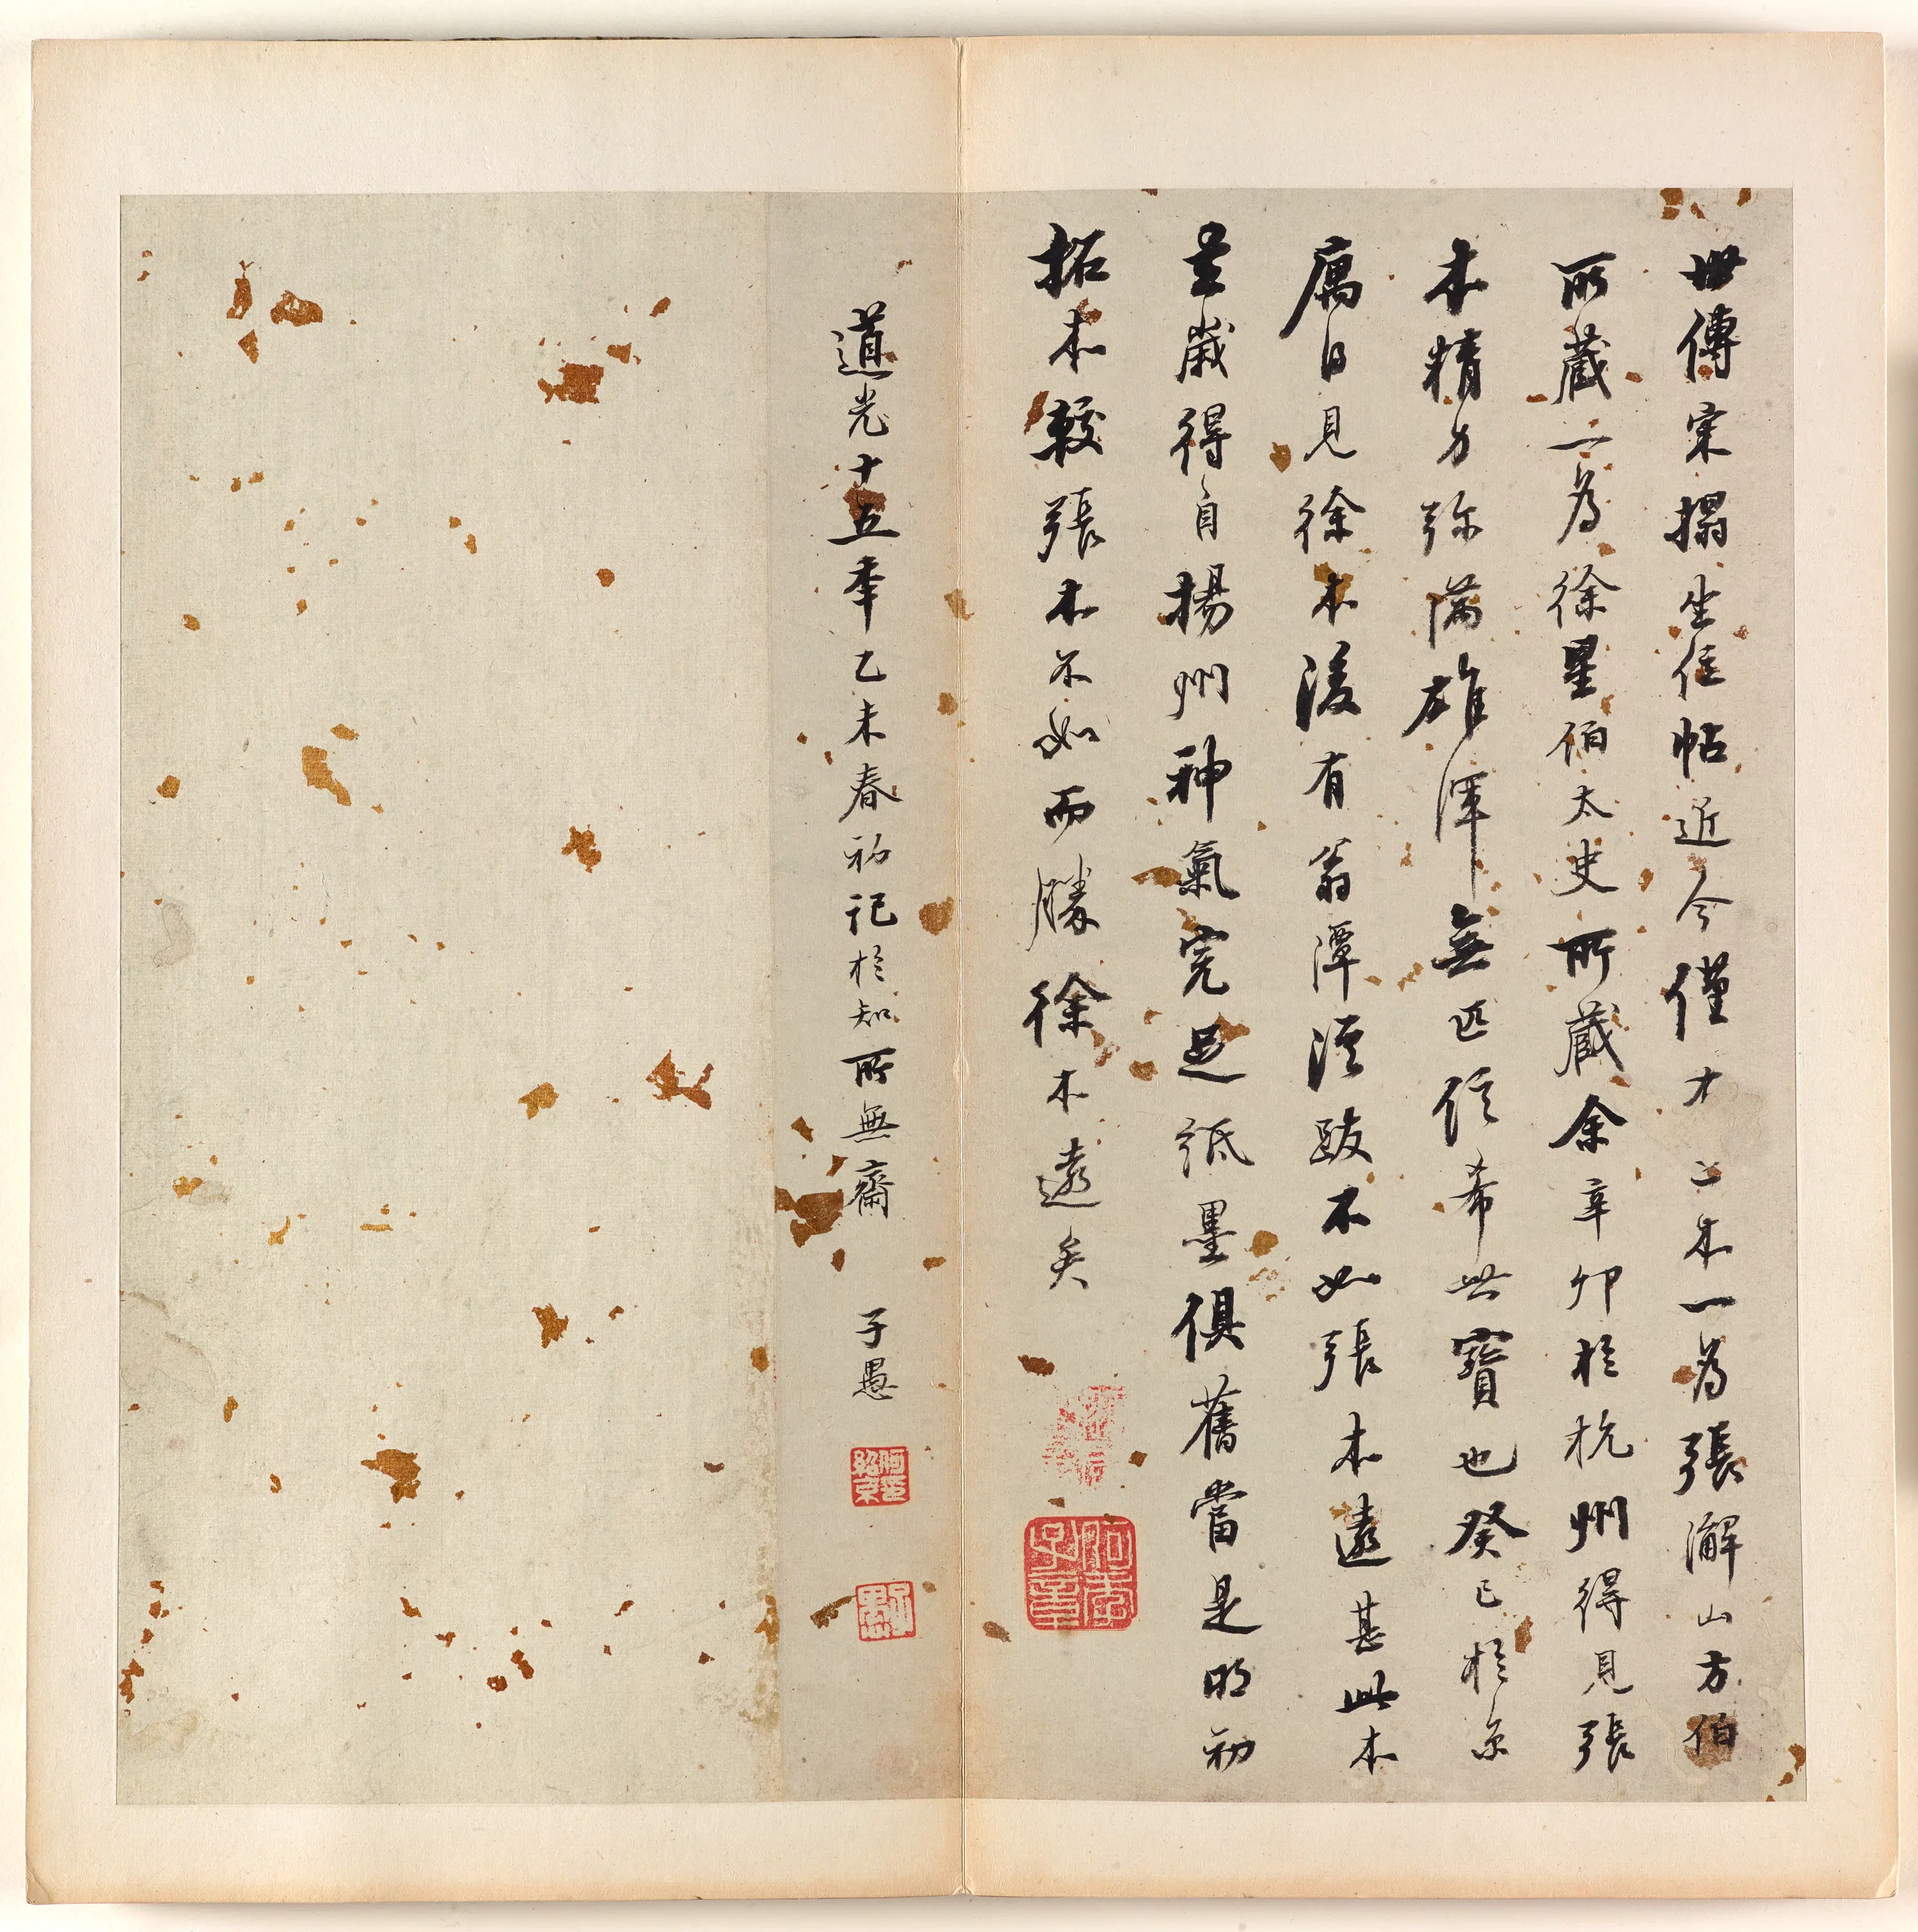 世傳宋搨坐位帖近今僅才二本一為張澥山方伯
所藏一為徐星伯太史所藏余辛卯於杭州得見張
本精力弥滿雄渾無匹信希世寶也癸巳於京
庽日見徐本後有翁潭溪跋不如張本遠甚此本
歲得自揚州神氣完足紙墨俱舊當是明初
拓本較張本不如而勝徐本遠矣
道光十五秊乙未春初記於知所無齋 子愚
何紹京印
子愚